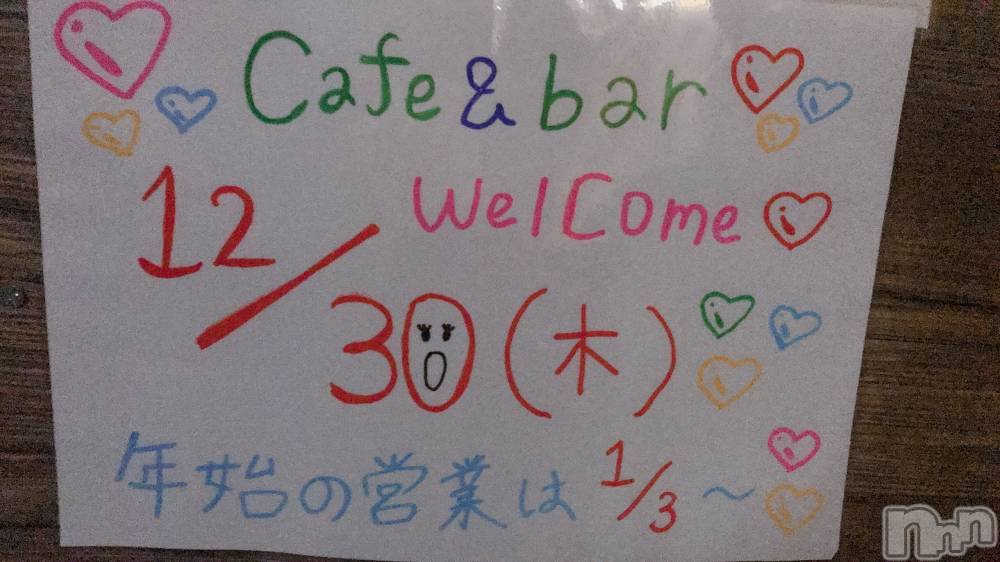 Cafe & bar
WelCome
12/30(木)
年始の営業は 1/3〜
nnn